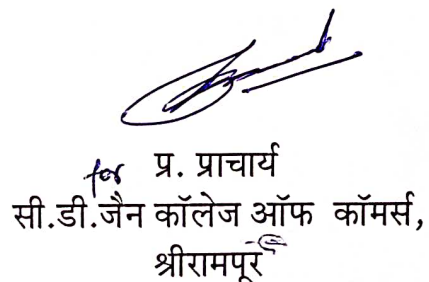 for प्र. प्राचार्य
सी.डी.जैन कॉलेज ऑफ कॉमर्स,
श्रीरामपूर